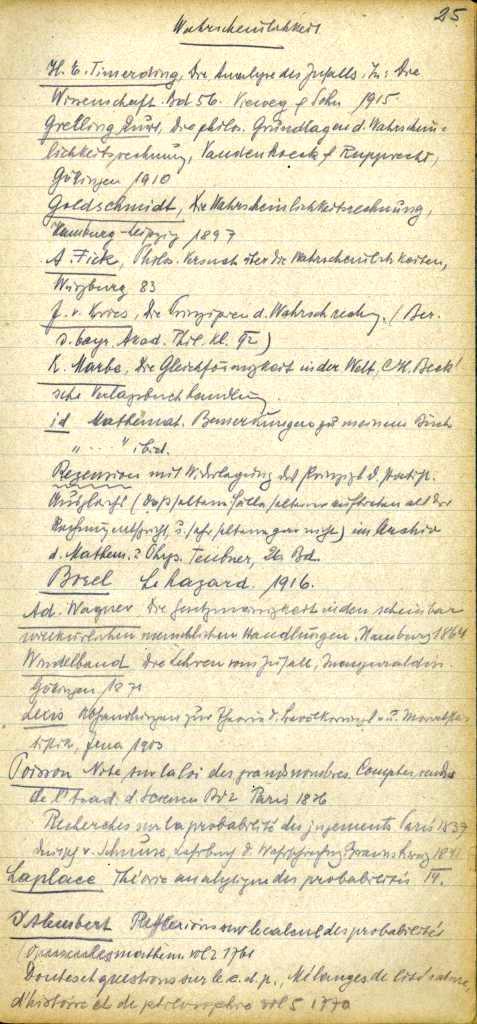 25.
Wahrscheinlichkeit
H. E. Timerding, Die Analyse des Zufalls. In: Die
Wissenschaft. Bd 56. Vieweg & Sohn 1915.
Grelling Kurt, Die philos. Grundlagen d. Wahrschein-
lichkeitsrechnung, Vandenhoeck & Rupprecht,
Göttingen 1910
Goldschmidt, Die Wahrscheinlichkeitsrechnung,
Hamburg-Leipzig 1897
A. Fick, Philos. Versuch über die Wahrscheinlichkeiten,
Würzburg 83
J. v. Kries, Die Prinzipien d. Wahrschrechng. (Ber.
d. bayr. Akad. Phil. Kl. 92)
K. Marbe, Die Gleichförmigkeit in der Welt, C.H. Beck'
sche Verlagsbuchhandlung.
id Mathemat. Bemerkungen zu meinem Buch
" ... " ibid.
Rezension mit Widerlegung des Prinzips d. statist.
Ausgleichs (dass seltene Fälle seltener auftreten als der
Rechnung entspricht, u. sehr seltene gar nicht) im Archiv
d. Mathem. & Phys. Teubner, 26 Bd.
Borel Le hazard. 1916.
Ad. Wagner Die Gesetzmässigkeit in den scheinbar
willkürlichen menschlichen Handlungen. Hamburg 1864
Windelband Die Lehren vom Zufall, Inauguraldiss.
Göttingen 1870
Lexis Abhandlungen zur Theorie d. Bevölkerungs- u. Moralsta
tistik, Jena 1903
Poisson Note sur la loi des grands nombres. Comptes rendus
de l'Acad. d. Sciences Bd 2 Paris 1836
Recherches sur la probabilité des jugements Paris 1837
v. Schnuse, Lehrbuch d. Braunschweig 1841
Laplace Théorie analytique des probabilités IV.
D'Alembert Réflexions sur le calcul des probabilités
(Opuscules mathem. vol 2 1761
Doutes et questions sur le c. d. p., Mélanges de littérature,
d'histoire et de philosophie vol 5 1770